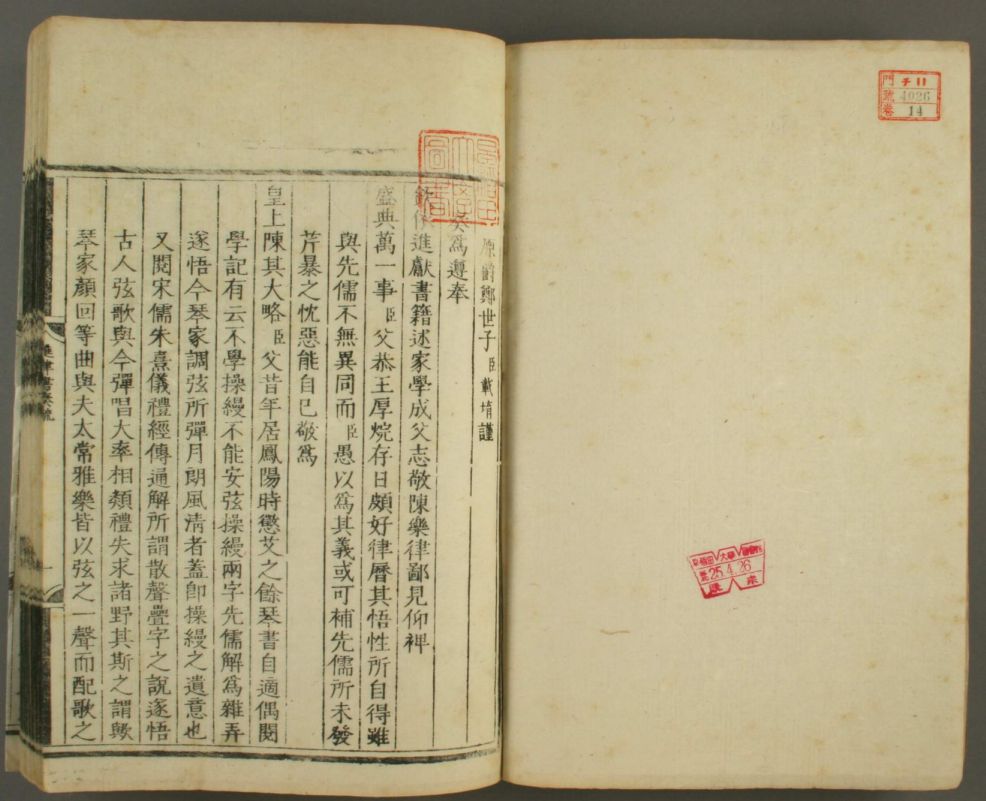 原爵鄭世子臣載堉謹
奏為遵奉
欽依進獻書籍述家學成父志敬陳樂律鄙見仰裨
盛典萬一事臣父恭王厚烷存日頗好律曆其悟性所自得雖
與先儒不無異同而臣愚以為其義或可補先儒所未發
芹暴之忱惡能自已敬為
皇上陳其大略臣父昔年居鳳陽時懲艾之餘琴書自適偶閱
學記有云不學操縵不能安弦操縵兩字先儒解為雜弄
遂悟今琴家調弦所彈月朗風清者蓋卽操縵之遺意也
又閱宋儒朱熹儀禮經傳通解所謂散聲疊字之說遂悟
古人弦歌與今彈唱大率相類禮失求諸野其斯之謂歟
琴家顏回等曲與夫太常雅樂皆以弦之一聲而配歌之
進律書奏疏
早稻田大學圖書
門 チ11
號 4026
卷 14
早稲田大學圖書館
25.4.26